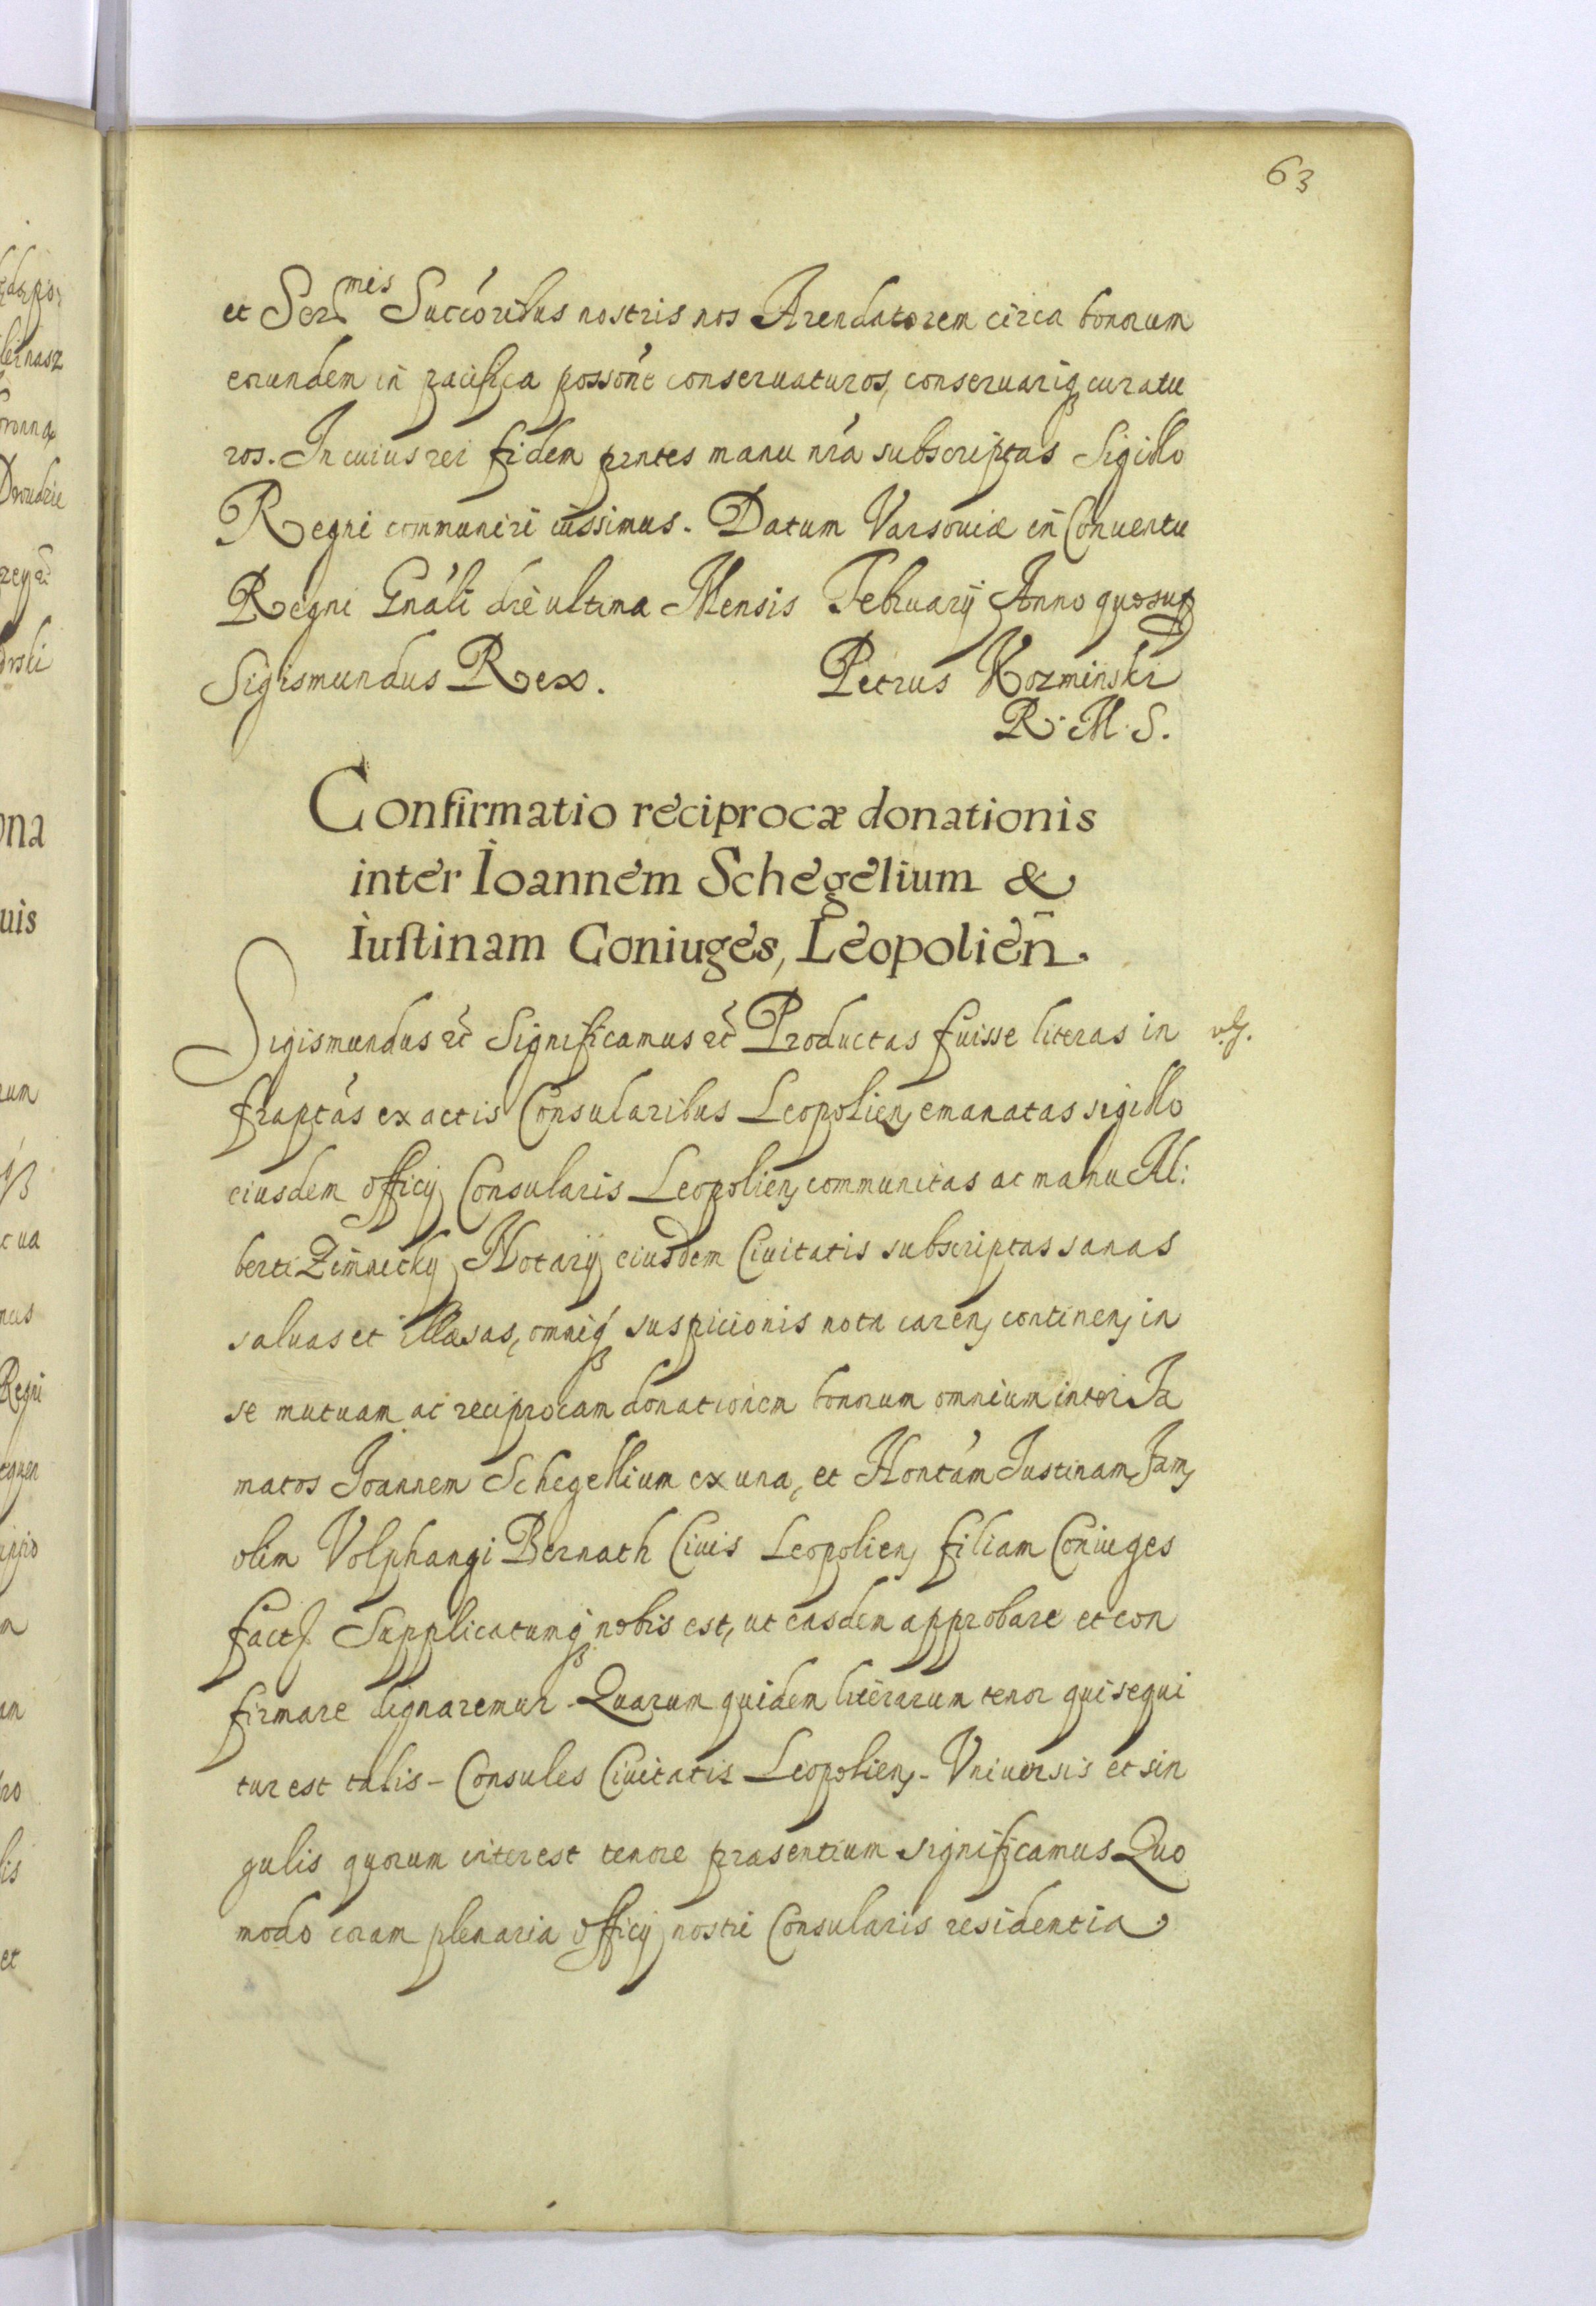 63
et Ser.mis Succóribus nostris nos Arendatorem circa bonorum
eorundem in pacifica possóne conseruaturos, conseruariq curatu
ros. In cuius rei fidem pntes manu nrá subscriptas Sigillo
Regni communiri iussimus. Datum Varsouiæ in Conuentu
Regni Gnáli die ultima Mensis February Anno quo sup
Sigismundus Rex. Petrus Kozminski
R. M. S.
Confirmatio reciprocæ donationis
inter Ioannem Schegelium &
Iustinam Coniuges, Leopolien̄.
Sigismundus etc̃ Significamus etc̃ Productas fuisse literas in
fraptás ex actis Consularibus Leopolien, emanatas sigillo
eiusdem officij Consularis Leopolien, communitas ac manu Al:
berti Zimnicky Notarij eiusdem Ciuitatis subscriptas sanas
saluas et illæsas, omniq suspicionis nota caren, continen, in
se mutuam ac reciprocam donationem bonorum omnium inter Fa
matos Ioannem Schegellium ex una, et Hontám Iustinam, Fam,
olim Volphangi Bernath Ciuis Leopolien, filiam Coniuges
fact. Supplicatumq nobis est, ut easdem approbare et con
firmare dignaremur. Quarum quidem literarum tenor qui sequi
tur est talis - Consules Ciuitatis Leopolien, - Vniuersis et sin
gulis quorum interest tenore præsentium significamus Quo
modo coram plenaria officij nostri Consularis residentia